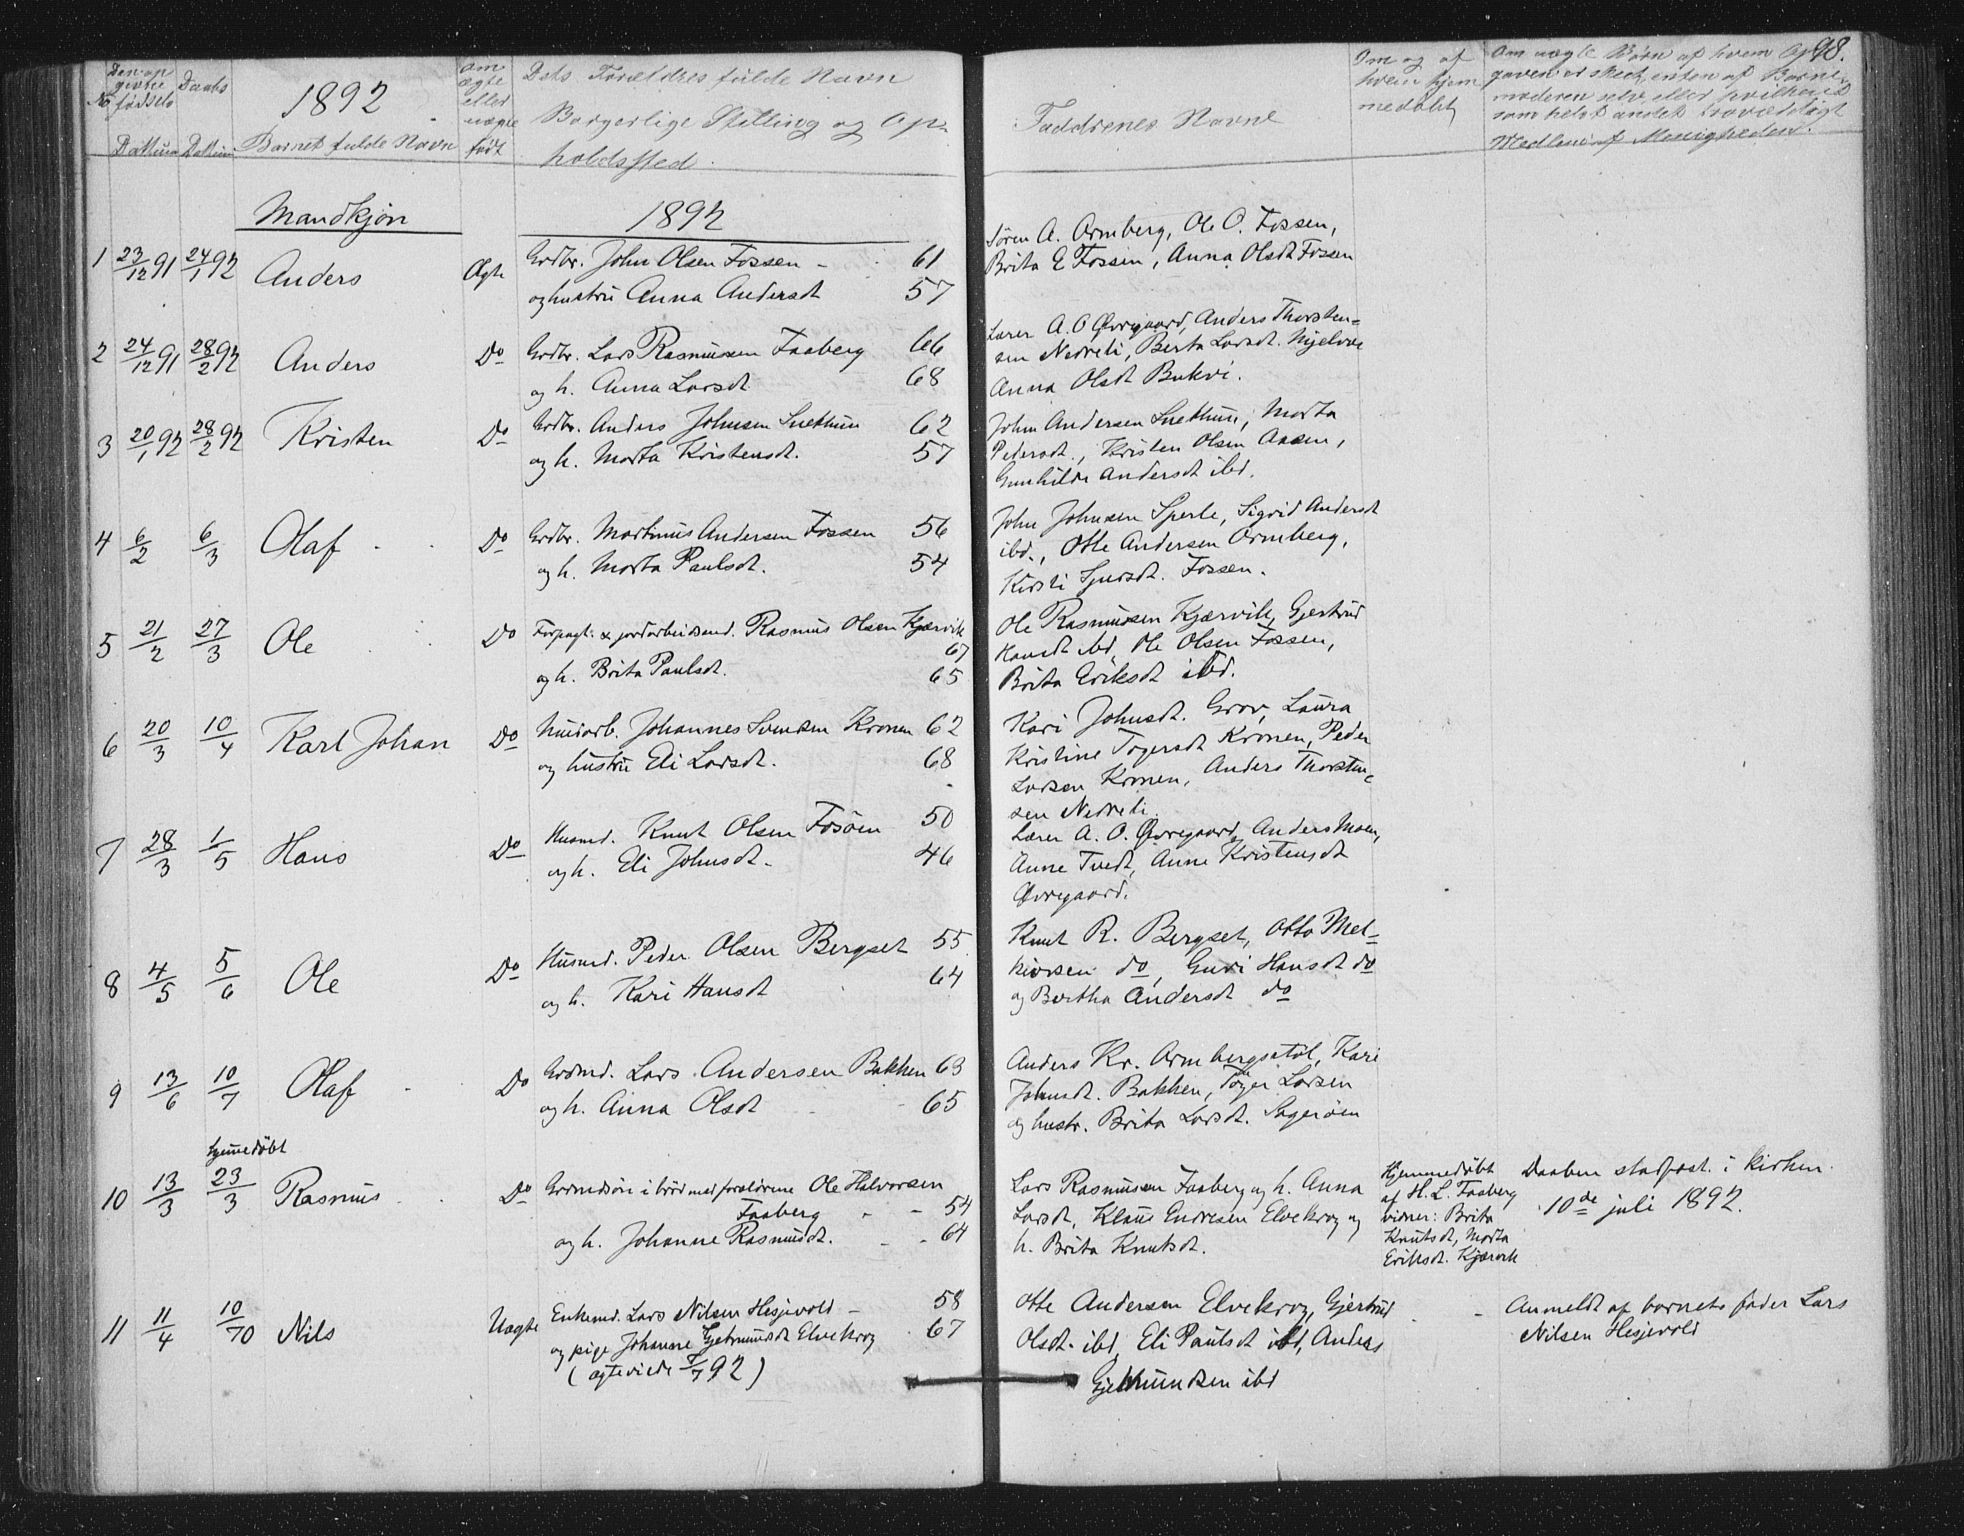 98.
No
Den op
givne
fødsels
Dattum
Daabs
Dattum
1892
Barnets fulde Navn
Om
ægte
eller
uægte
født
Dets Forældres fulde Navn
Borgerlige Stilling og Op-
holdssted.
Faddrenes Navne
Om og af
hvem hjem
medøbt
Om uægte Børn af hvem Op
gaven er skeet, enten af Barne
moderen selv, eller hvilketsomhelst andet troværdigt
Medlem af Menigheden.
Mandkjøn
1892
1 23/12 91 24/1 92 Anders Ægte Grdbr. John Olsen Fossen - 61
og hustru Anna Andersdt 57
Søren A. Ormberg, Ole O. Fossen,
Brita E Fossen, Anna Olsdt Fossen
2 24/12 91 28/2 92 Anders Do Grdbr. Lars Rasmussen Faaberg 66
og h. Anna Larsdt 68
Lærer A. O Øvregaard, Anders Thorsten-
sen Nedreli, Berta Larsdt. Mjelvæ
Anna Olsdt Bukvi.
3 20/1 92 28/2 92 Kristen Do Grdbr. Anders Johnsen Snethun 62
og h. Marta Kristensdt. 57
John Andersen Snethun, Marta
Pedersdt., Kristen Olsen Aasen,
Gunhilde Andersdt ibd.
4 6/2 6/3 Olaf Do Grdbr. Martinus Andersen Fossen 56
og h. Marta Paulsdt. 54
John Johnsen Sperle, Sigrid Andersdt
ibd., Otte Andersen Ormberg,
Kirsti Sjursdt. Fossen.
5 21/2 27/3 Ole Do Forpagt. & jordarbeidsmd. Rasmus Olsen Kjærvik
67
og h. Brita Paulsdt. 65
Ole Rasmussen Kjærvik, Gjertrud
Hansdt ibd, Ole Olsen Fossen,
Brita Eriksdt ibd.
6 20/3 10/4 Karl Johan Do Johannes Svendsen Kronen 62
og hustru Eli Larsdt. 68
Kari Johnsdt. Grov, Laura
Kristine Tøgersdt Kronen, Peder
Larsen Kronen, Anders Thorsten-
sen Nedreli
7 28/3 1/5 Hans Do Husmd. Knut Olsen Fosøen 50
og h. Eli Johnsdt. 46
Lærer A. O. Øvregaard, Anders Moen,
Anne Tvedt, Anne Kristensdt
Øvregaard.
8 4/5 5/6 Ole Do Husmd. Peder Olsen Bergset 55
og h. Kari Hansdt 64
Knut R. Bergset, Otto Mel-
kiorsen do, Guri Hansdt do
og Bertha Andersdt do
9 13/6 10/7 Olaf Do Grdmd. Lars Andersen Bakken 63
og h. Anna Olsdt 65
Anders Kr. Ormbergsstøl, Kari
Johnsdt. Bakken, Tøger Larsen
og hustr. Brita Larsdt. Sagerøen
hjemmedøbt
10 13/3 23/3 Rasmus Do Grdmdsøn i brød med forældrene Ole Halvorsen
Faaberg - - 54
og h. Johanne Rasmusdt. - - 64
Lars Rasmussen Faaberg og h. Anna
Larsdt, Klaus Endresen Elvekrog og
h. Brita Knutsdt.
Hjemmedøbt
af H. L. Faaberg
vidner: Brita
Knutsdt, Marta
Eriksdt. Kjærvik
Daaben stadfæst. i kirken
10de juli 1892.
11 11/4 10/70 Nils Uægte Enkemd. Lars Nilsen Hesjevold - 58
og pige Johanne Gjetmundsdt Elvekrog 67
(ægteviede /7 92)
Otte Andersen Elvekrog, Gjertrud
Olsdt. ibd, Eli Paulsdt ibd, Anders
Gjetmundsen ibd
Anmeldt af barnets fader Lars
Nilsen Hesjevold